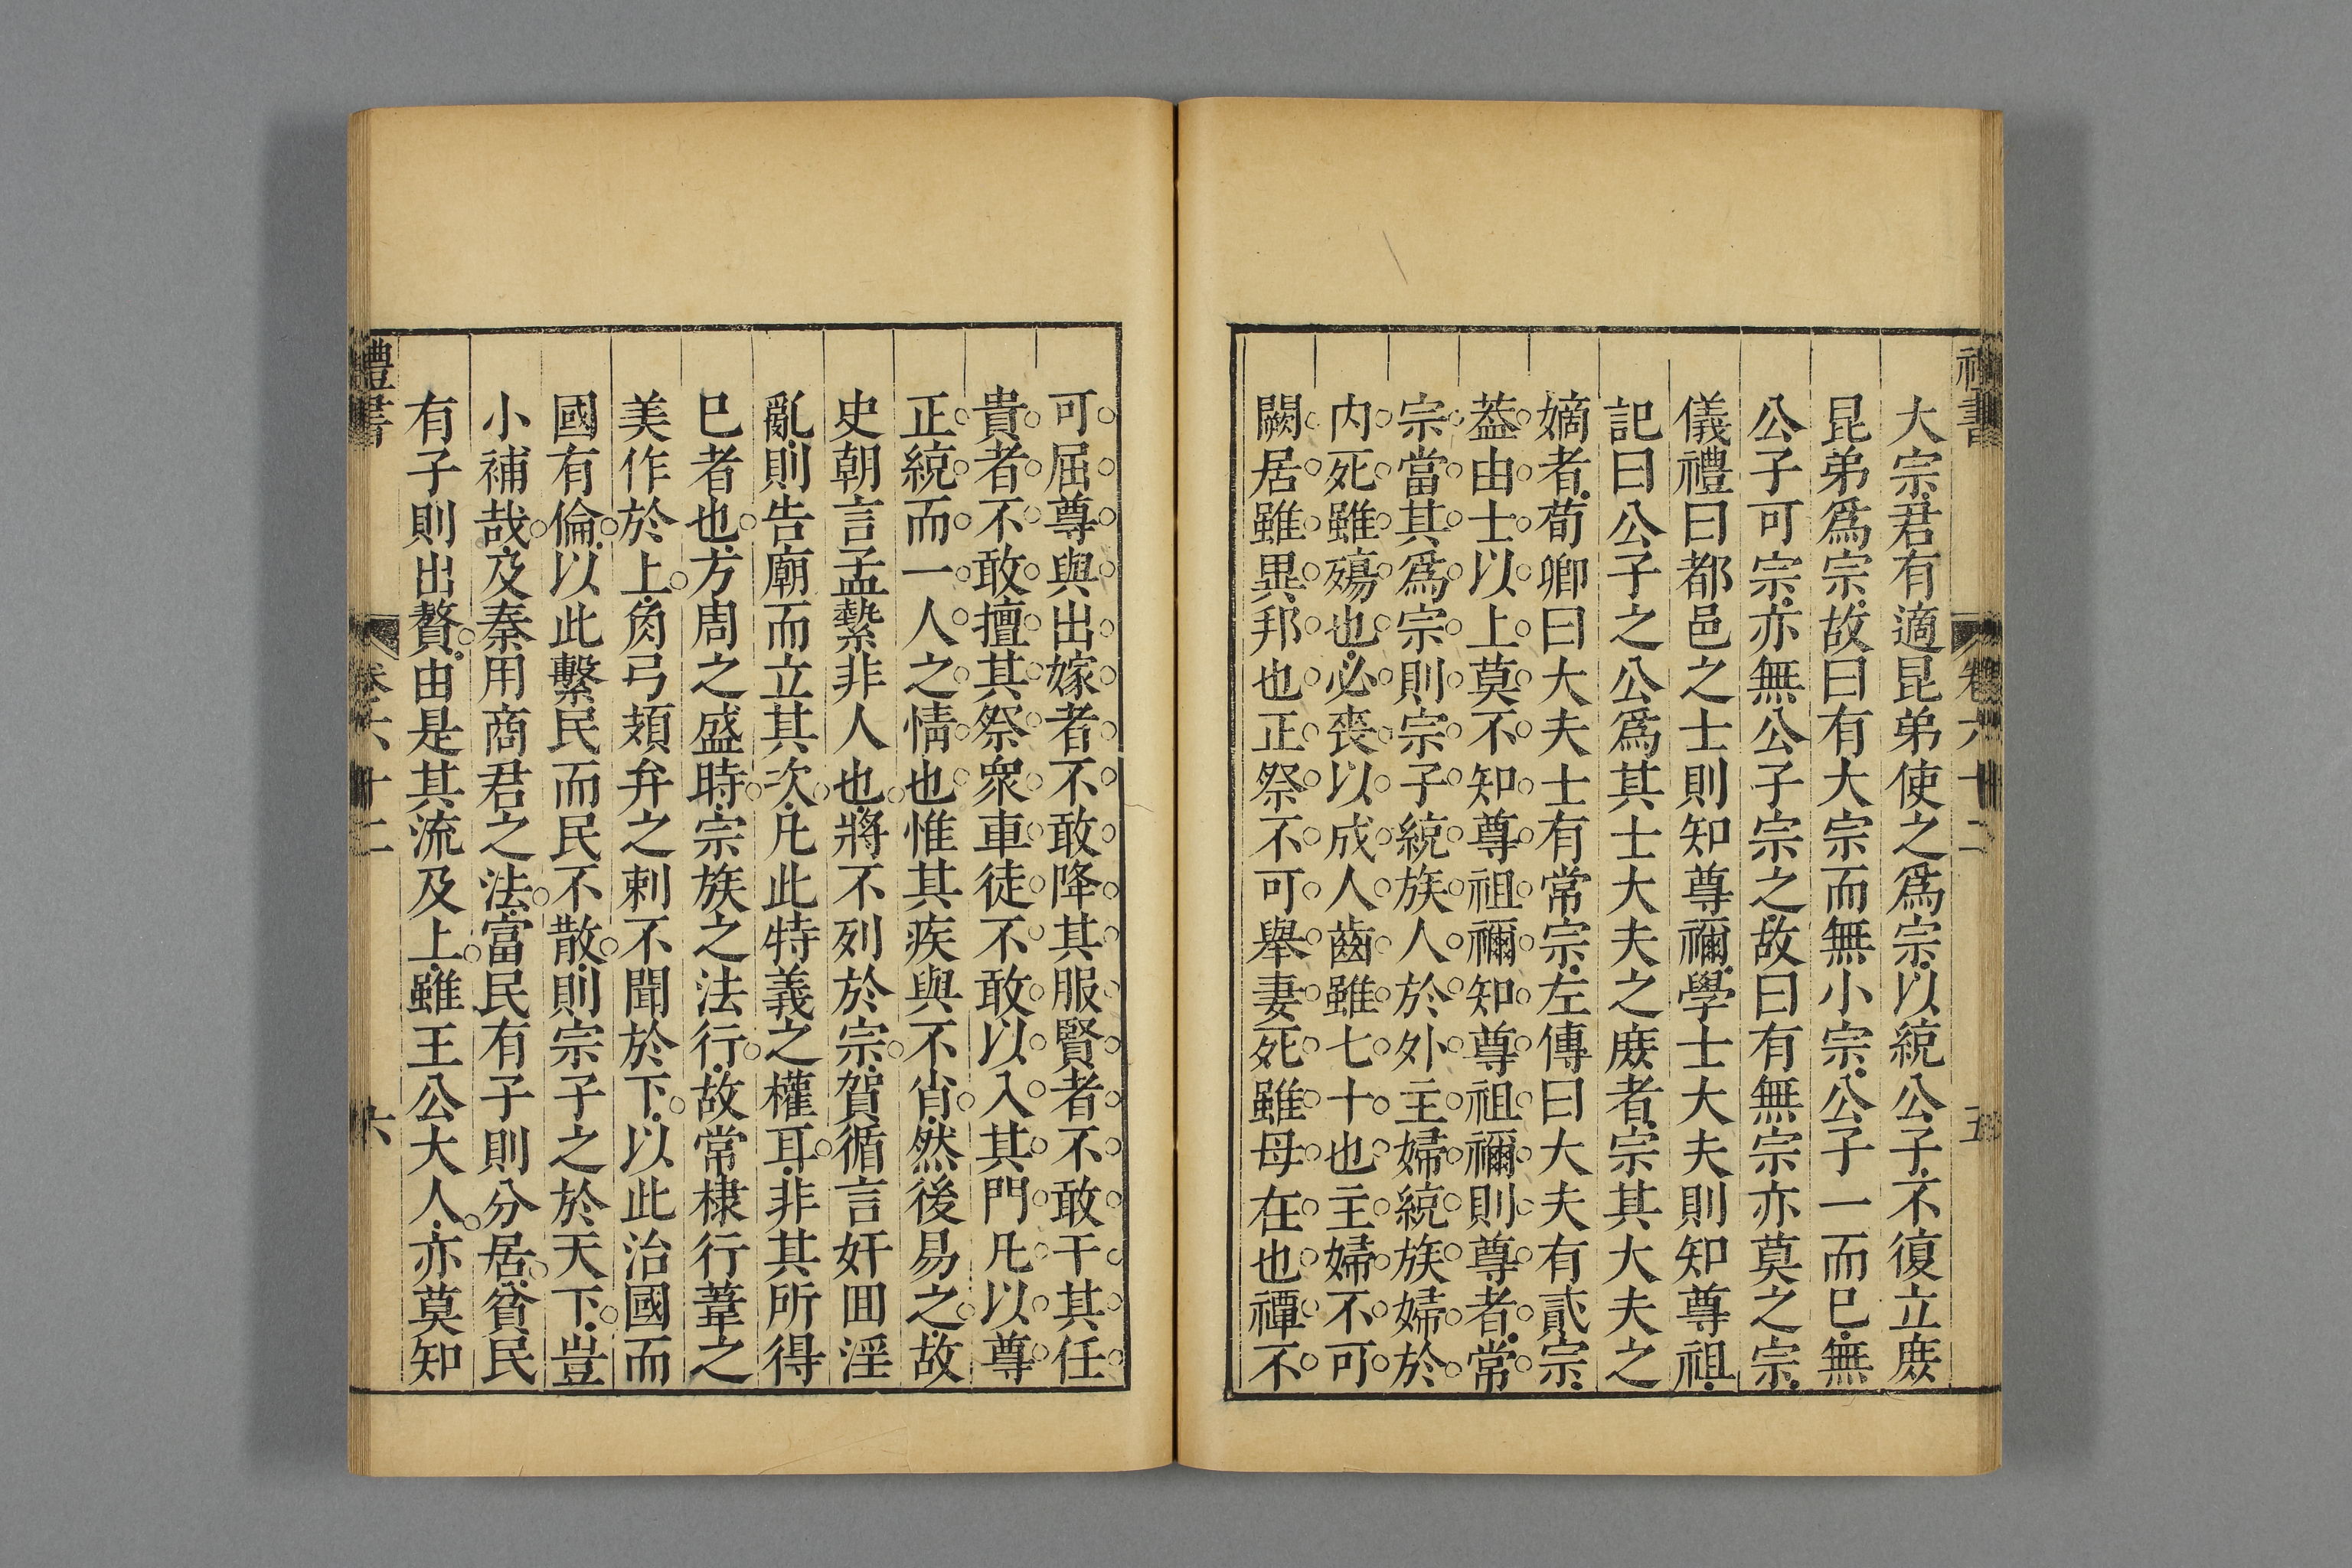 禮書 卷六十二 五
大宗君有適昆弟使之爲宗以統公子不復立庻
昆弟爲宗故曰有大宗而無小宗公子一而巳無
公子可宗亦無公子宗之故曰有無宗亦莫之宗
儀禮曰都邑之士則知尊禰學士大夫則知尊祖
記曰公子之公爲其士大夫之庻者宗其大夫之
嫡者荀卿曰大夫士有常宗左傳曰大夫有貳宗
葢由士以上莫不知尊祖禰知尊祖禰則尊者常
宗當其爲宗則宗子統族人於外主婦統族婦於
内死雖殤也必喪以成人齒雖七十也主婦不可
闕居雖異邦也正祭不可舉妻死雖母在也禫不
可屈尊與出嫁者不敢降其服賢者不敢干其任
貴者不敢擅其祭衆車徒不敢以入其門凡以尊
正統而一人之情也惟其疾與不肖然後易之故
史朝言孟縶非人也將不列於宗賀循言奸囬淫
亂則告廟而立其次凡此特義之權耳非其所得
巳者也方周之盛時宗族之法行故常棣行葦之
美作於上角弓頍弁之刺不聞於下以此治國而
國有倫以此繫民而民不散則宗子之於天下豈
小補哉及秦用商君之法富民有子則分居貧民
有子則出贅由是其流及上雖王公大人亦莫知
禮書 卷六十二 六